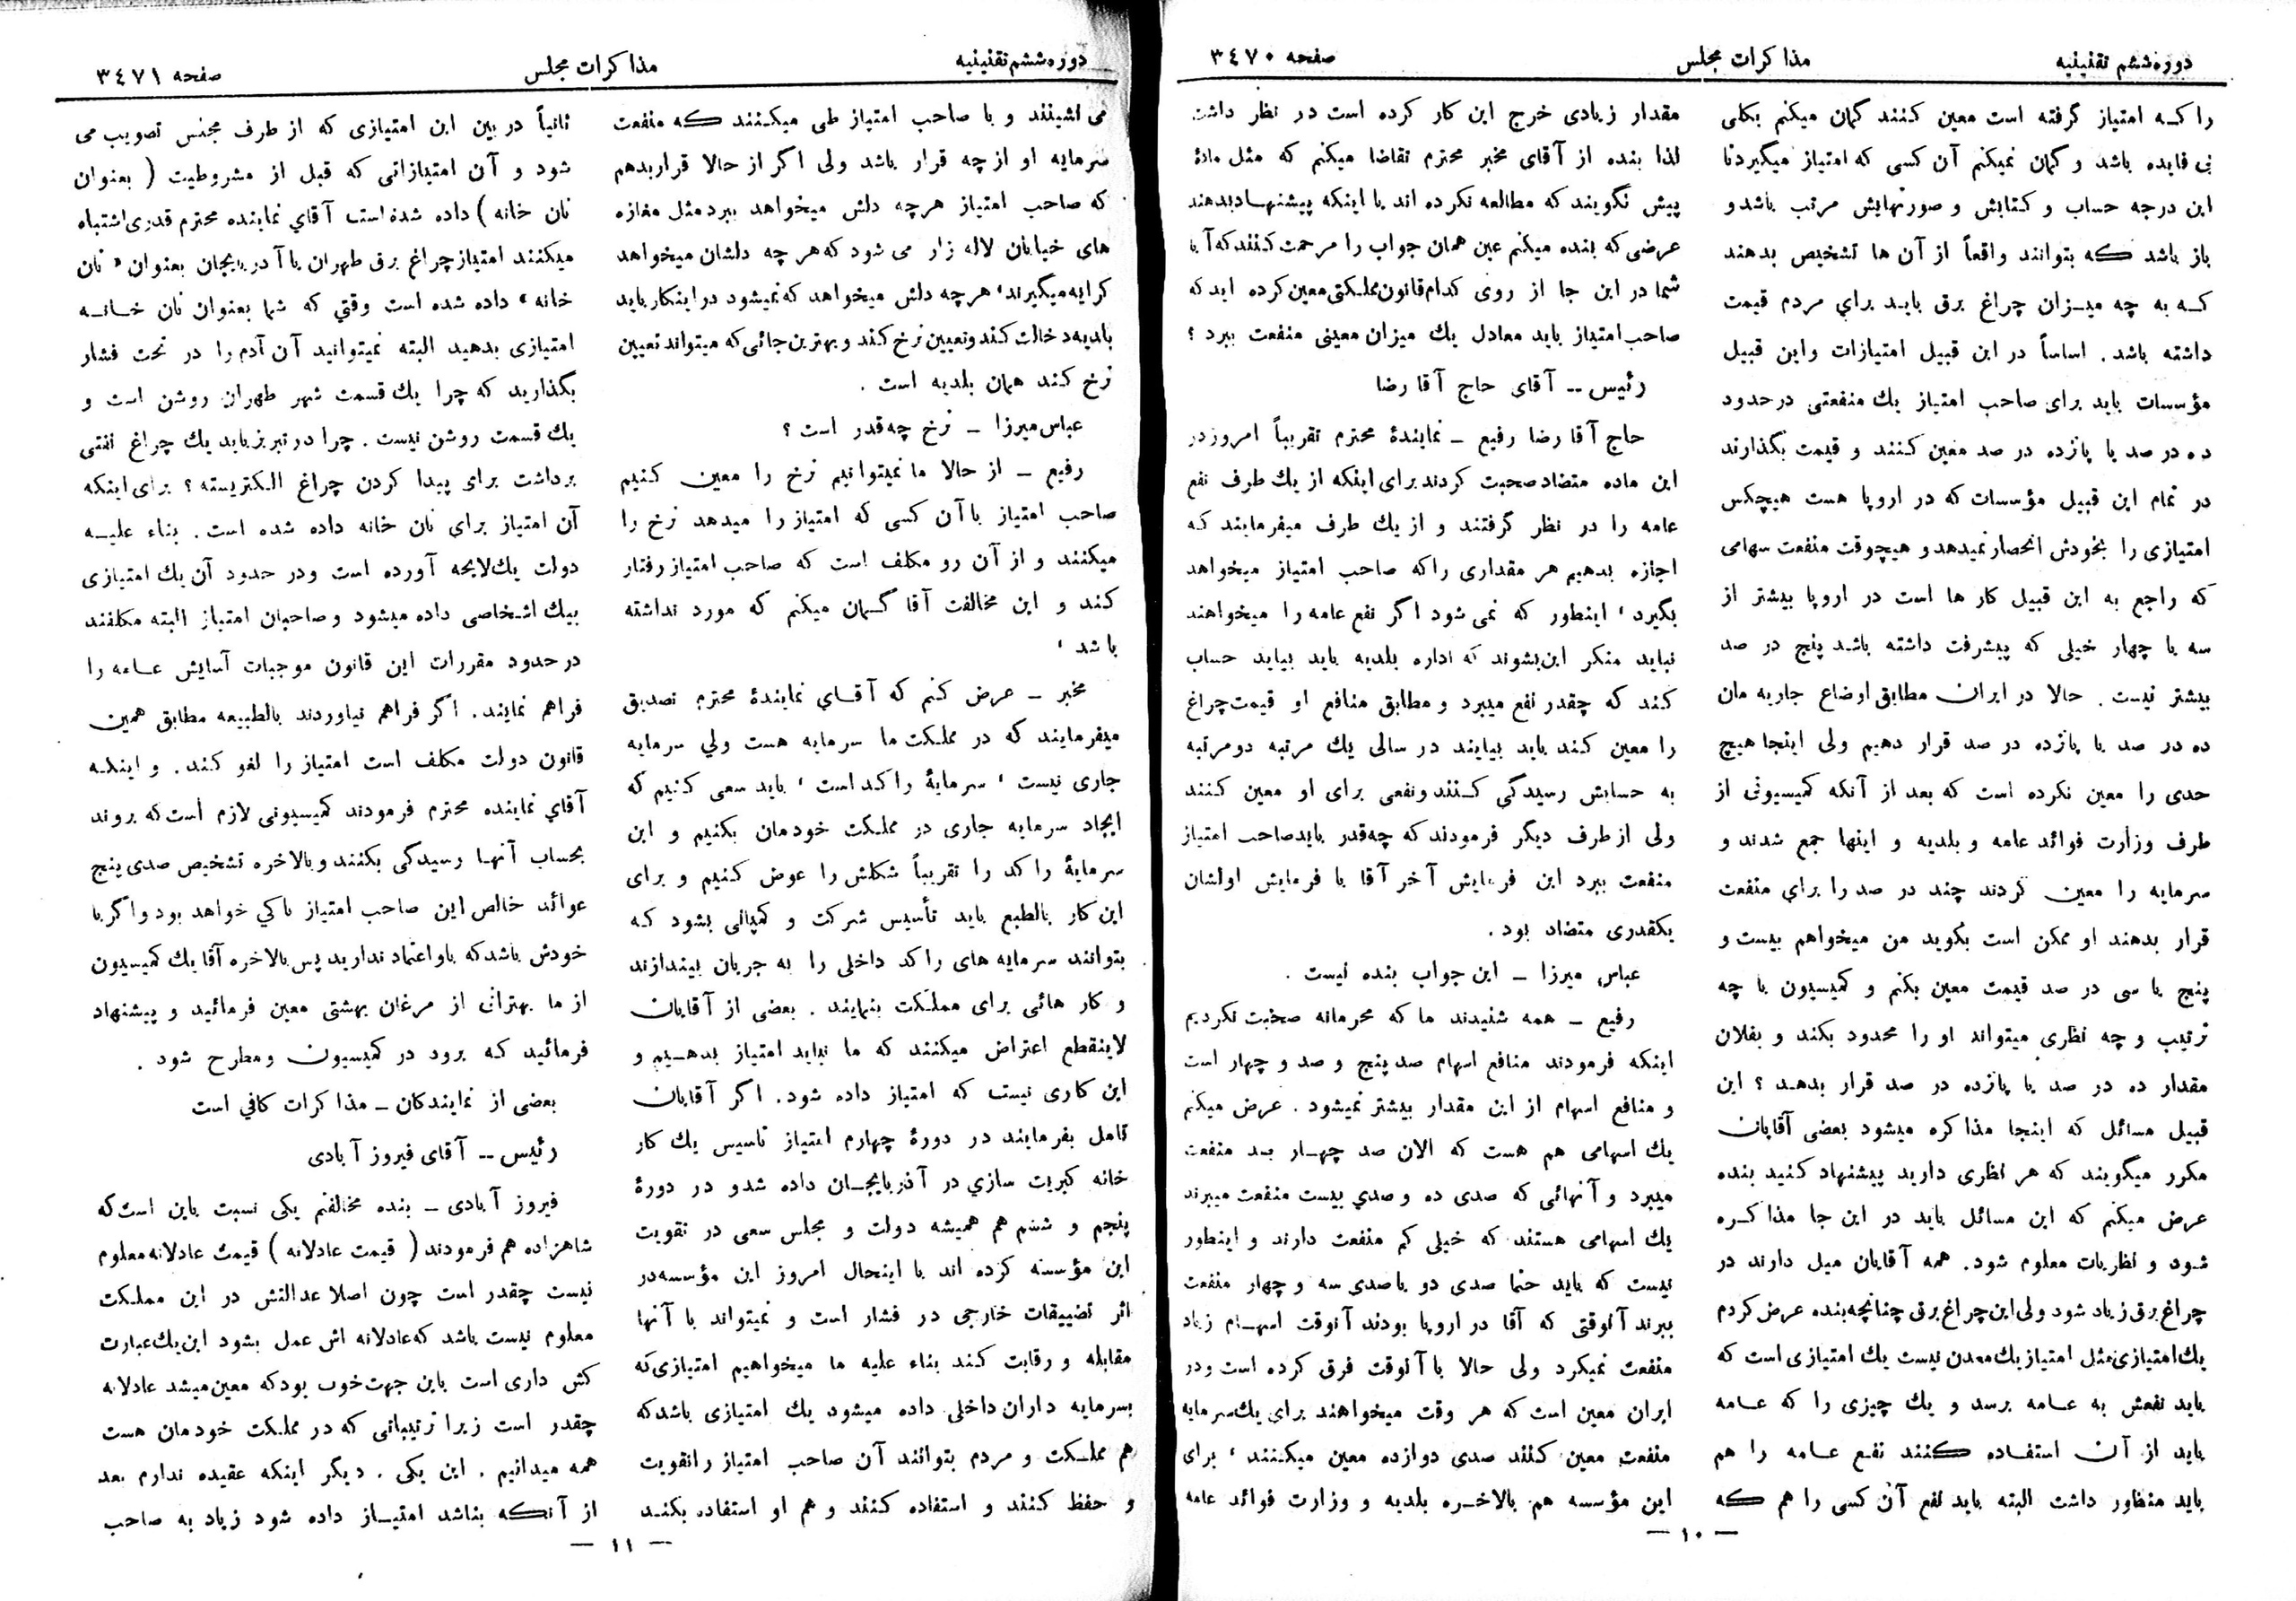 دوره ششم تقنینیه
مذاکرات مجلس
صفحه ۳٤۷۰
را که امتیاز گرفته است معین کنند گمان میکنم بکلی
بی فایده باشد و گمان نمیکنم آن کسی که امتیاز میگیرد تا
این درجه حساب و کتابش و صورتهایش مرتب باشد و
باز باشد که بتوانند واقعاً از آن ها تشخیص بدهند
که به چه میزان چراغ برق باید برای مردم قیمت
داشته باشد . اساساً در این قبیل امتیازات و این قبیل
مؤسسات باید برای صاحب امتیاز یك منفعتی در حدود
ده در صد یا پانزده در صد معین کنند و قیمت بگذارند
در تمام این قبیل مؤسسات که در اروپا هست هیچکس
امتیازی را بخودش انحصار نمیدهد و هیچوقت منفعت سهامی
که راجع به این قبیل کار ها است در اروپا بیشتر از
سه یا چهار خیلی که پیشرفت داشته باشد پنج در صد
بیشتر نیست . حالا در ایران مطابق اوضاع جاریه مان
ده در صد یا پانزده در صد قرار دهیم ولی اینجا هیچ
حدی را معین نکرده است که بعد از آنکه کمیسیونی از
طرف وزارت فوائد عامه و بلدیه و اینها جمع شدند و
سرمایه را معین کردند چند در صد را برای منفعت
قرار بدهند او ممکن است بگوید من میخواهم بیست و
پنج یا سی در صد قیمت معین بکنم و کمیسیون با چه
ترتیب و چه نظری میتواند او را محدود بکند و بفلان
مقدار ده در صد یا پانزده در صد قرار بدهد ؟ این
قبیل مسائل که اینجا مذاکره میشود بعضی آقایان
مکرر میگویند که هر نظری دارید پیشنهاد کنید بنده
عرض میکنم که این مسائل باید در این جا مذاکره
شود و نظریات معلوم شود . همه آقایان میل دارند در
چراغ برق زیاد شود ولی این چراغ برق چنانچه بنده عرض کردم
یك امتیازی مثل امتیاز یك معدن نیست یك امتیازی است که
باید نفعش به عامه برسد و یك چیزی را که عامه
باید از آن استفاده کنند نفع عامه را هم
باید منظور داشت البته باید نفع آن کسی را هم که
مقدار زیادی خرج این کار کرده است در نظر داشت
لذا بنده از آقای مخبر محترم تقاضا میکنم که مثل مادهٔ
پیش نگویند که مطالعه نکرده اند یا اینکه پیشنهاد بدهند
عرضی که بنده میکنم عین همان جواب را مرحمت کنند که آیا
شما در این جا از روی کدام قانون مملکتی معین کرده اید که
صاحب امتیاز باید معادل یك میزان معینی منفعت ببرد ؟
رئیس -- آقای حاج آقا رضا
حاج آقا رضا رفیع ــ نمایندهٔ محترم تقریباً امروز در
این ماده متضاد صحبت کردند برای اینکه از یك طرف نفع
عامه را در نظر گرفتند و از یك طرف میفرمایند که
اجازه بدهیم هر مقداری را که صاحب امتیاز میخواهد
بگیرد ، اینطور که نمی شود اگر نفع عامه را میخواهند
نباید منکر این بشوند که اداره بلدیه باید بیاید حساب
کند که چقدر نفع میبرد و مطابق منافع او قیمت چراغ
را معین کند باید بیایند در سالی یك مرتبه دو مرتبه
به حسابش رسیدگی کنند و نفعی برای او معین کنند
ولی از طرف دیگر فرمودند که چه قدر باید صاحب امتیاز
منفعت ببرد این فرمایش آخر آقا با فرمایش اولشان
یکقدری متضاد بود .
عباس میرزا ــ این جواب بنده نیست .
رفیع ــ همه شنیدند ما که محرمانه صحبت نکردیم
اینکه فرمودند منافع اسهام صد پنج و صد و چهار است
و منافع اسهام از این مقدار بیشتر نمیشود . عرض میکنم
یك اسهامی هم هست که الان صد چهار صد منفعت
میبرد و آنهائی که صدی ده و صدی بیست منفعت میبرند
یك اسهامی هستند که خیلی کم منفعت دارند و اینطور
نیست که باید حتما صدی دو یا صدی سه و چهار منفعت
ببرند آنوقتی که آقا در اروپا بودند آنوقت اسهام زیاد
منفعت نمیکرد ولی حالا با آنوقت فرق کرده است و در
ایران معین است که هر وقت میخواهند برای یك سرمایه
منفعت معین کنند صدی دوازده معین میکنند ، برای
این مؤسسه هم بالاخره بلدیه و وزارت فوائد عامه
ــ ۱۰ ــ
دوره ششم تقنینیه
مذاکرات مجلس
صفحه ۳٤۷۱
می نشینند و با صاحب امتیاز طی میکنند که منفعت
سرمایه او از چه قرار باشد ولی اگر از حالا قرار بدهیم
که صاحب امتیاز هر چه دلش میخواهد ببرد مثل مغازه
های خیابان لاله زار می شود که هر چه دلشان میخواهد
کرایه میگیرند ، هر چه دلش میخواهد که نمیشود در اینکار باید
بلدیه دخالت کند و تعیین نرخ کند و بهترین جائی که میتواند تعیین
نرخ کند همان بلدیه است .
عباس میرزا ــ نرخ چه قدر است ؟
رفیع ــ از حالا ما نمیتوانیم نرخ را معین کنیم
صاحب امتیاز با آن کسی که امتیاز را میدهد نرخ را
میکنند و از آن رو مکلف است که صاحب امتیاز رفتار
کند و این مخالفت آقا گمان میکنم که مورد نداشته
باشد ،
مخبر ــ عرض کنم که آقای نمایندهٔ محترم تصدیق
میفرمایند که در مملکت ما سرمایه هست ولی سرمایه
جاری نیست ، سرمایهٔ راکد است ، باید سعی کنیم که
ایجاد سرمایه جاری در مملکت خودمان بکنیم و این
سرمایهٔ راکد را تقریباً شکلش را عوض کنیم و برای
این کار بالطبع باید تأسیس شرکت و کمپانی بشود که
بتوانند سرمایه های راکد داخلی را به جریان بیندازند
و کار هائی برای مملکت بنمایند . بعضی از آقایان
لاینقطع اعتراض میکنند که ما نباید امتیاز بدهیم و
این کاری نیست که امتیاز داده شود . اگر آقایان
تامل بفرمایند در دورهٔ چهارم امتیاز تاسیس یك کار
خانه کبریت سازی در آذربایجان داده شد و در دورهٔ
پنجم و ششم هم همیشه دولت و مجلس سعی در تقویت
این مؤسسه کرده اند با اینحال امروز این مؤسسه در
اثر تضییقات خارجی در فشار است و نمیتواند با آنها
مقابله و رقابت کند بناء علیه ما میخواهیم امتیازی که
بسرمایه داران داخلی داده میشود یك امتیازی باشد که
هم مملکت و مردم بتوانند آن صاحب امتیاز را تقویت
و حفظ کنند و استفاده کنند و هم او استفاده بکند
ثانیاً در بین این امتیازی که از طرف مجلس تصویب می
شود و آن امتیازاتی که قبل از مشروطیت ( بعنوان
نان خانه ) داده شده است آقای نماینده محترم قدری اشتباه
میکنند امتیاز چراغ برق طهران یا آذربایجان بعنوان « نان
خانه » داده شده است وقتی که شما بعنوان نان خانه
امتیازی بدهید البته نمیتوانید آن آدم را در تحت فشار
بگذارید که چرا یك قسمت شهر طهران روشن است و
یك قسمت روشن نیست . چرا در تبریز باید یك چراغ نفتی
برداشت برای پیدا کردن چراغ الکتریسته ؟ برای اینکه
آن امتیاز برای نان خانه داده شده است . بناء علیه
دولت یك لایحه آورده است و در حدود آن یك امتیازی
بیك اشخاصی داده میشود و صاحبان امتیاز البته مکلفند
در حدود مقررات این قانون موجبات آسایش عامه را
فراهم نمایند . اگر فراهم نیاوردند بالطبیعه مطابق همین
قانون دولت مکلف است امتیاز را لغو کند . و اینکه
آقای نماینده محترم فرمودند کمیسیونی لازم است که بروند
بحساب آنها رسیدگی بکنند و بالاخره تشخیص صدی پنج
عوائد خالص این صاحب امتیاز با کی خواهد بود و اگر با
خودش باشد که باو اعتماد ندارید پس بالاخره آقا یك کمیسیون
از ما بهترانی از مرغان بهشتی معین فرمائید و پیشنهاد
فرمائید که برود در کمیسیون و مطرح شود .
بعضی از نمایندگان ــ مذاکرات کافی است
رئیس -- آقای فیروز آبادی
فیروز آبادی ــ بنده مخالفم یکی نسبت باین است که
شاهزاده هم فرمودند ( قیمت عادلانه ) قیمت عادلانه معلوم
نیست چقدر است چون اصلا عدالتش در این مملکت
معلوم نیست باشد که عادلانه اش عمل بشود این یك عبارت
کش داری است باین جهت خوب بود که معین میشد عادلانه
چقدر است زیرا ترتیباتی که در مملکت خودمان هست
همه میدانیم . این یکی . دیگر اینکه عقیده ندارم بعد
از آنکه بناشد امتیاز داده شود زیاد به صاحب
ــ ۱۱ ــ